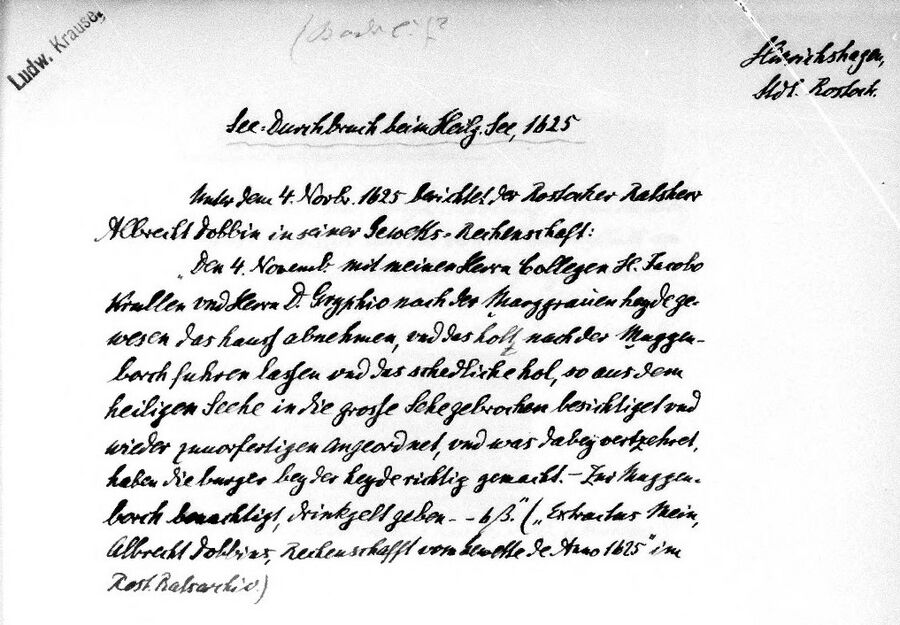 Ludw. Krause,
Hinrichshagen,
Stdt. Rostock.
See-Durchbruch beim Heilg. See, 1625
Unter dem 4. Novbr. 1625 berichtet der Rostocker Ratsherr
Albrecht Dobbin in seiner Gewetts-Rechenschaft:
"Den 4. Novemb. mit meinen Herrn Collegen H. Jacobo
Krullen vnd Herrn D. Gryphio nach der Marggrauen heyde ge-
wesen das hauß abnehmen, vnd das holtz nach der Muggen-
borch fuhren lassen vnd das schedliche hol, so aus dem
heiligen Seehe in die grosse Sehe gebrochen besichtiget vnd
wieder zuuorfertigen angeordnet, vnd was dabey vertzehret,
haben die burger bey der heyde richtig gemacht. – Zur Muggen-
borch benachtigt, drinkgelt geben – – 6 ß." („Extractus Mein,
Albrecht Dobbins, Rechenschafft vom Gewette de Anno 1625" im
Rost. Ratsarchiv.)